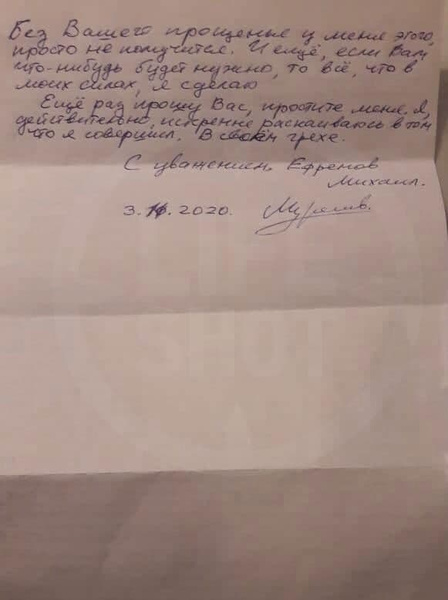 Без Вашего прощенья у меня этого,
просто не получится. И ещё, если Вам
что-нибудь будет нужно, то всё, что в
моих силах, я сделаю
Ещё раз прошу Вас, простите меня. Я,
действительно, искренне раскаиваюсь в том
что я совершил. В своём грехе.
С уважением, Ефремов
Михаил.
3. .2020.
SHOT